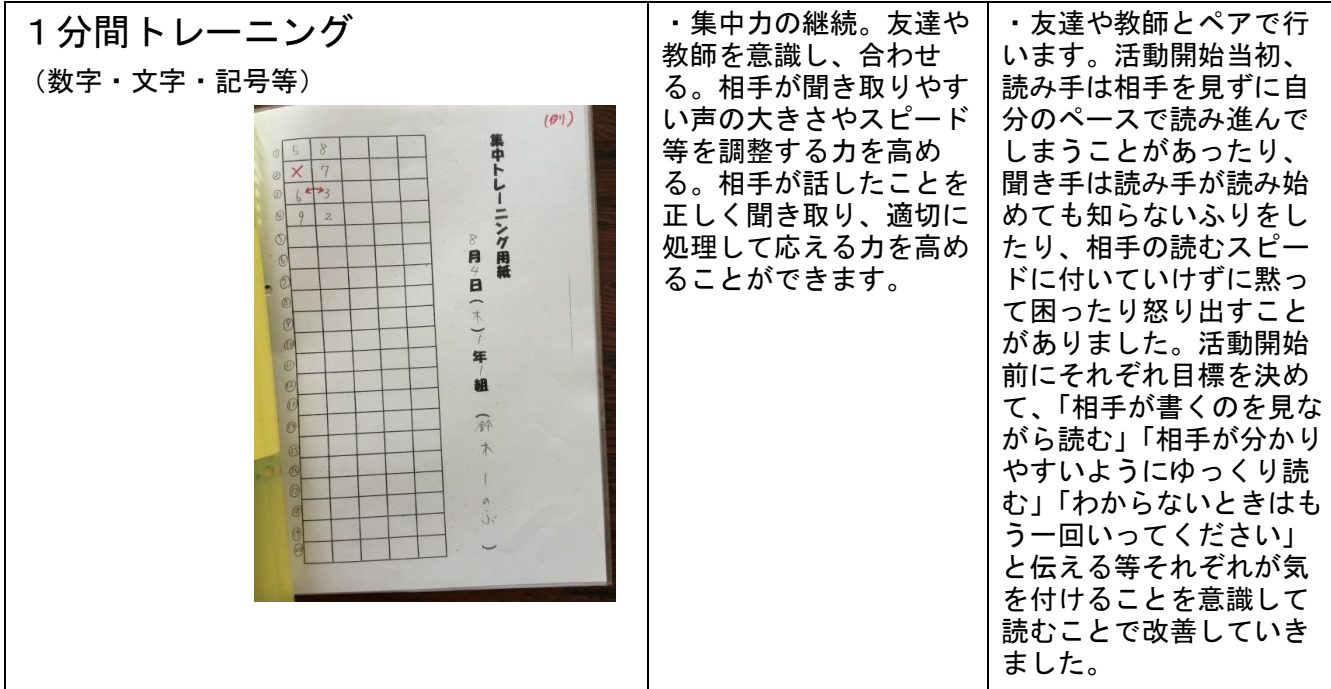 １分間トレーニング
（数字・文字・記号等）
(例)
集中トレーニング用紙
8月4日(木)1年1組(鈴木しのぶ)
① 5 8
② × 7
③ 6 3
④ 9 2
⑤
⑥
⑦
⑧
⑨
⑩
⑪
⑫
⑬
⑭
⑮
⑯
⑰
⑱
⑲
⑳
・集中力の継続。友達や
教師を意識し、合わせ
る。相手が聞き取りやす
い声の大きさやスピード
等を調整する力を高め
る。相手が話したことを
正しく聞き取り、適切に
処理して応える力を高め
ることができます。
・友達や教師とペアで行
います。活動開始当初、
読み手は相手を見ずに自
分のペースで読み進んで
しまうことがあったり、
聞き手は読み手が読み始
めても知らないふりをし
たり、相手の読むスピー
ドに付いていけずに黙っ
て困ったり怒り出すこと
がありました。活動開始
前にそれぞれ目標を決め
て、「相手が書くのを見な
がら読む」「相手が分かり
やすいようにゆっくり読
む」「わからないときはも
う一回いってください」
と伝える等それぞれが気
を付けることを意識して
読むことで改善していき
ました。